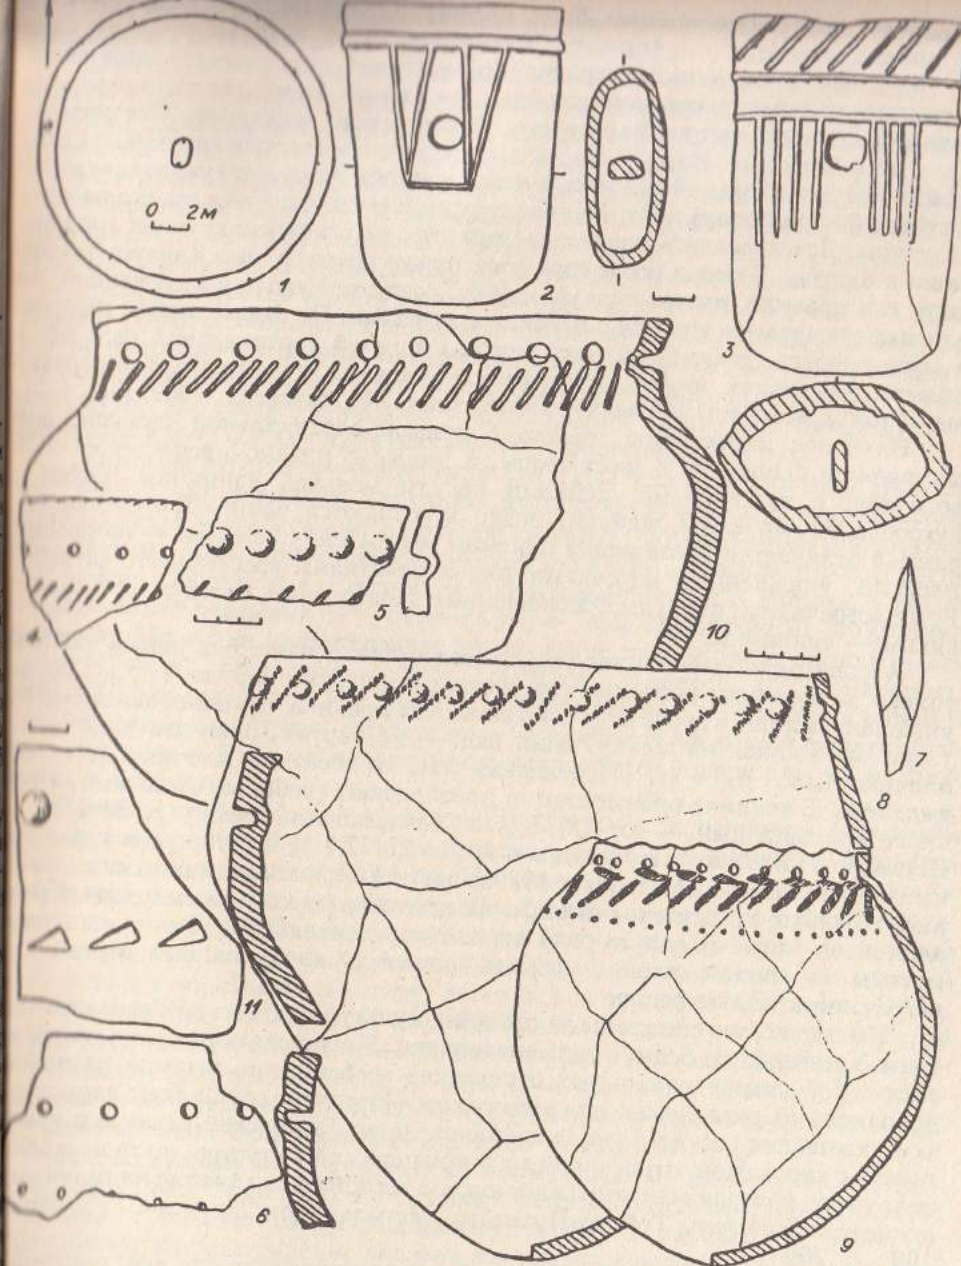 0 2м
1
2
3
4
5
10
7
8
11
6
9